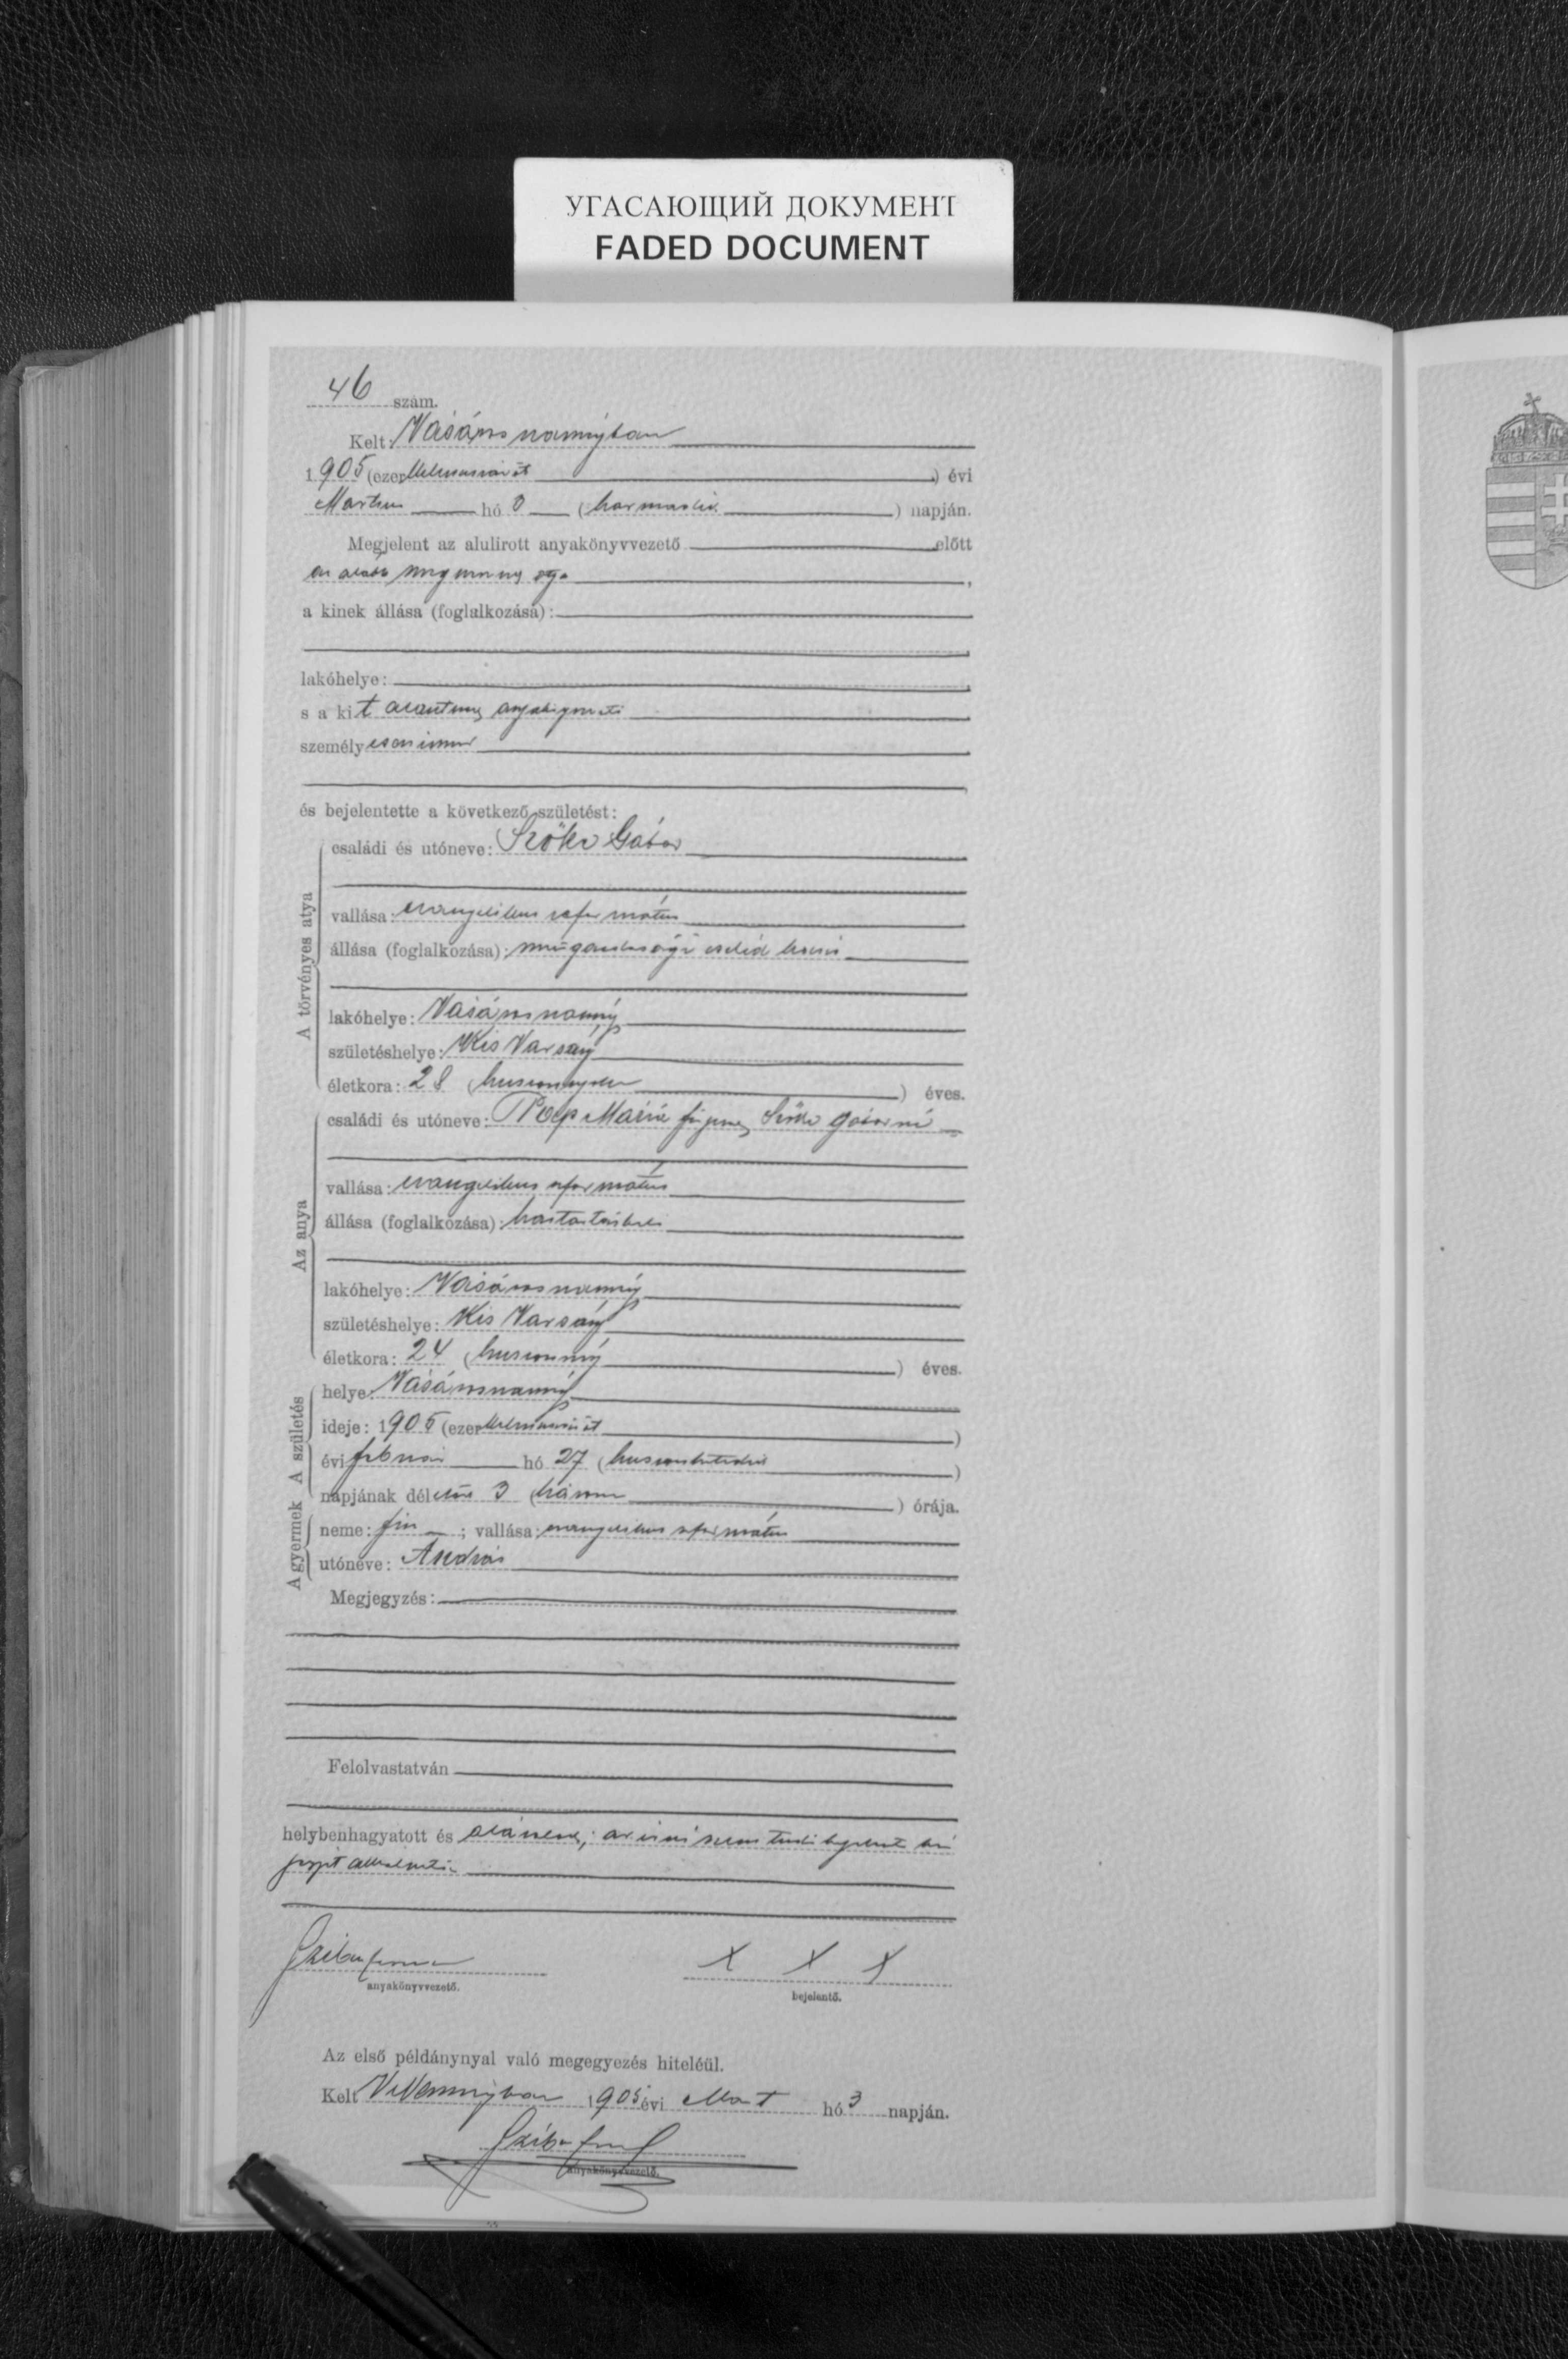 УГАСАЮЩИЙ ДОКУМЕНТ
FADED DOCUMENT
46 szám.
Kelt: Vásárosnaményban
1905 (ezer ) évi
Martius hó 3 (harmadik ) napján.
Megjelent az alulirott anyakönyvvezető előtt
az alább
a kinek állása (foglalkozása):
lakóhelye:
s a kit
személyesen ismer
és bejelentette a következő születést:
A törvényes atya
családi és utóneve: Szőke Gábor
vallása: evangelikus református
állása (foglalkozása): cseléd
lakóhelye: Vásárosnamény
születéshelye: Kis Varsány
életkora: 28 (huszonnyolc ) éves.
Az anya
családi és utóneve: Pap Mária Szőke Gáborné
vallása: evangelikus református
állása (foglalkozása): háztartásbeli
lakóhelye: Vásárosnamény
születéshelye: Kis Varsány
életkora: 24 (huszonnégy ) éves.
A születés
helye: Vásárosnamény
ideje: 1905 (ezer )
évi február hó 27 (huszonhetedik )
napjának délelőtt 3 (három ) órája.
A gyermek
neme: fiu ; vallása: evangelikus református
utóneve: András
Megjegyzés:
Felolvastatván
helybenhagyatott és aláiratott; irni nem tud
anyakönyvvezető.
X X X
bejelentő.
Az első példánynyal való megegyezés hiteléül.
Kelt V.Naményban 1905 évi Mart hó 3 napján.
anyakönyvvezető.